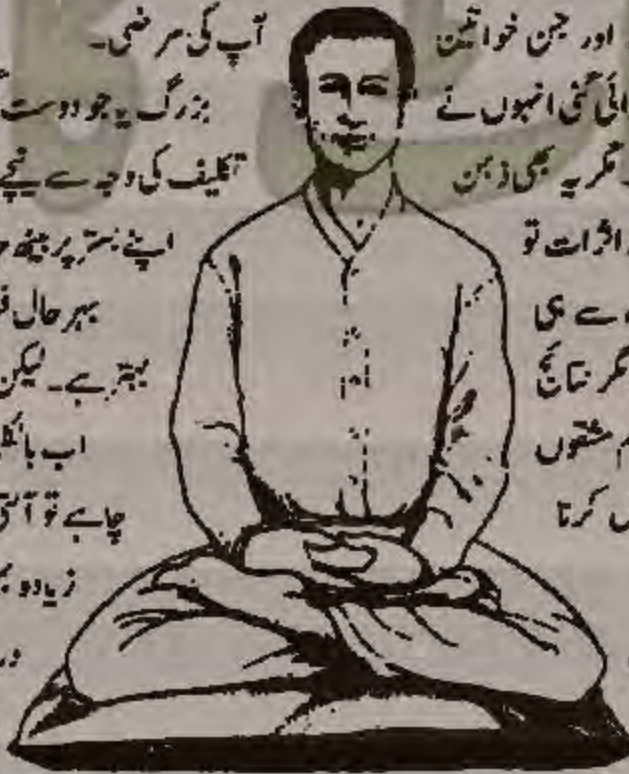 اور جن خواتین
گئی انہوں نے
مگر یہ بھی ذہن
اثرات تو
سے ہی
مگر نتائج
مشقوں
کرتا
آپ کی مرضی۔
بزرگ یا جو دوست
تکلیف کی وجہ سے نیچے
اپنے بستر پر بیٹھ
بہر حال
بہتر ہے۔ لیکن
اب
چاہے تو آلتی
زیادہ